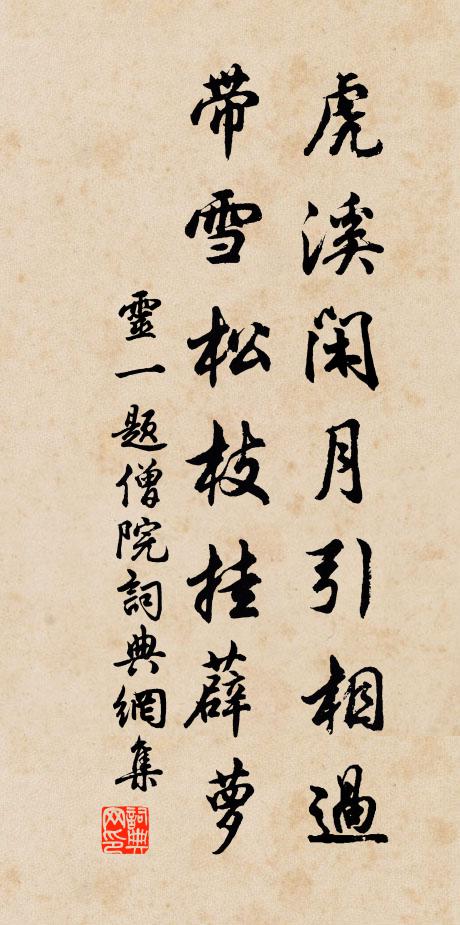 虎溪閑月引相過
帶雪松枝挂薜萝
靈一題僧院詞典網集
詞典
网印